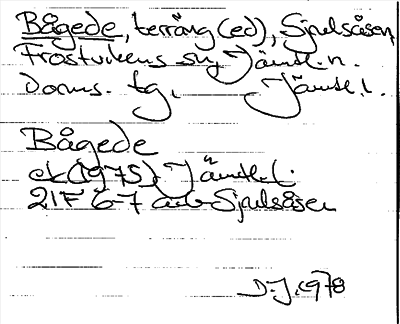 Bågede, terräng (ed), Sjoutsåsen,
Frostvikens sn, Jämtl. n.
Doms. tg, Jämtl. l.
Bågede
ek (1975) Jämtl. l.
21F 6-7 a-b Sjoutsåsen
D.J. 1978